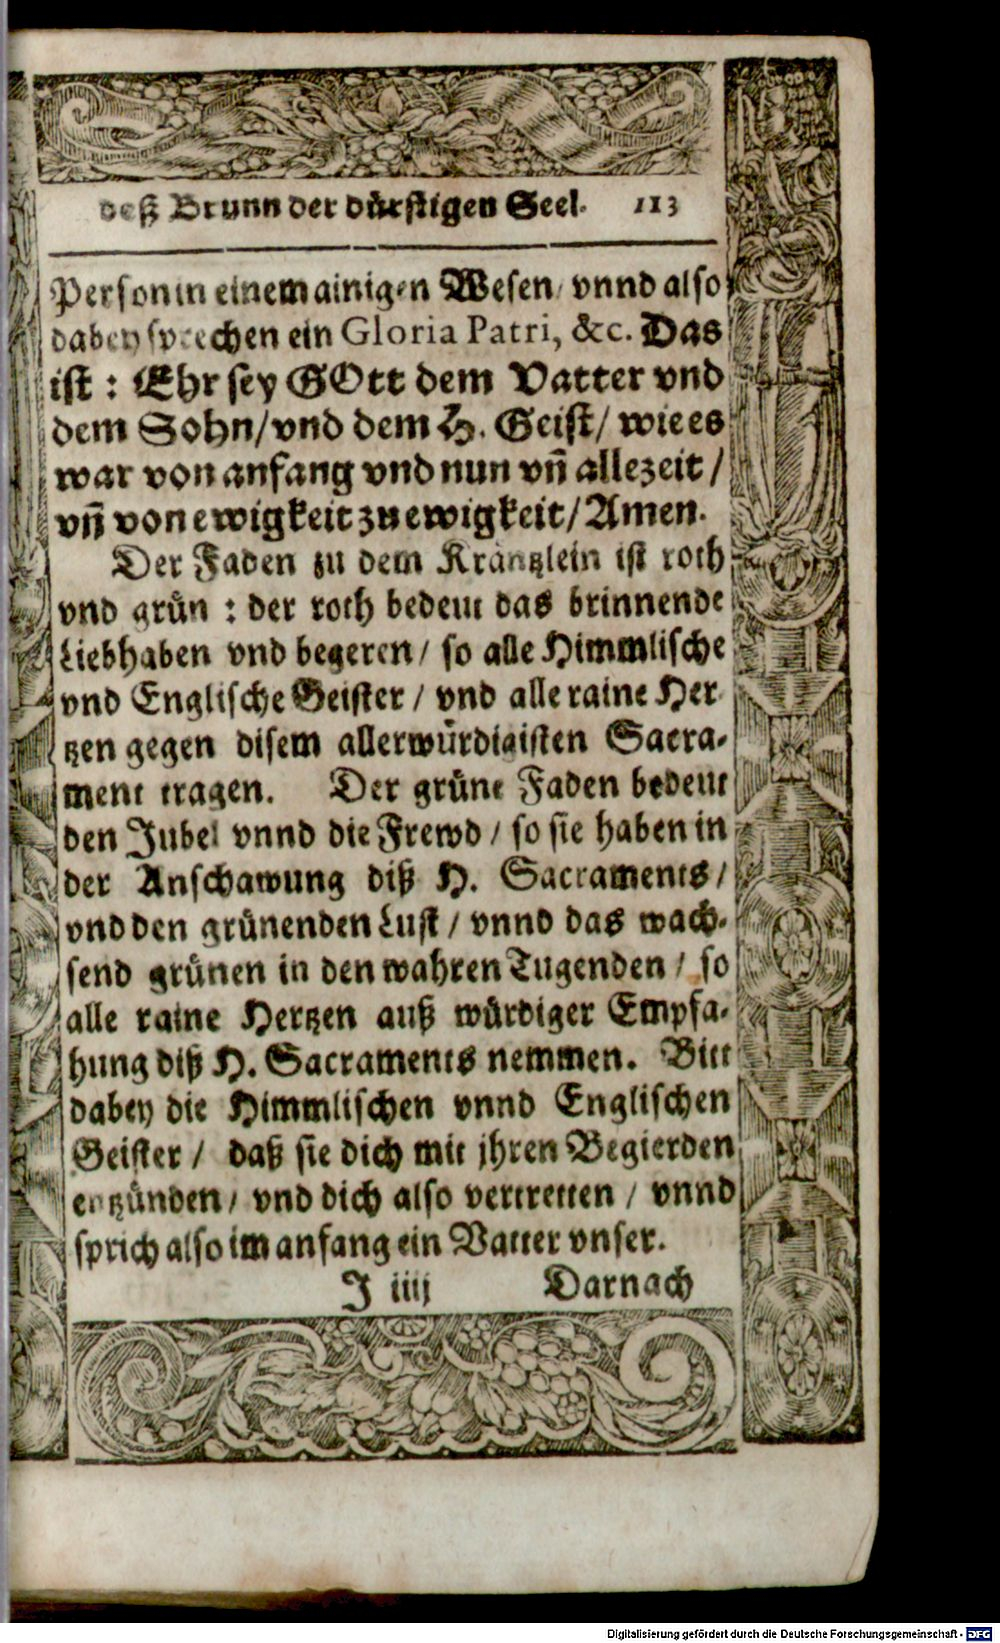 deß Brunn der dürstigen Seel. 113
Person in einem ainigen Wesen / vnnd also
dabey sprechen ein Gloria Patri, &c. Das
ist : Ehr sey GOtt dem Vatter vnd
dem Sohn / vnd dem H. Geist / wie es
war von anfang vnd nun vñ allezeit /
vñ von ewigkeit zu ewigkeit / Amen.
Der Faden zu dem Kräntzlein ist roth
vnd grün : der roth bedeut das brinnende
Liebhaben vnd begeren / so alle Himmlische
vnd Englische Geister / vnd alle raine Her-
tzen gegen disem allerwürdigisten Sacra-
ment tragen. Der grüne Faden bedeut
den Jubel vnnd die Frewd / so sie haben in
der Anschawung diß H. Sacraments /
vnd den grünenden Lust / vnnd das wach-
send grünen in den wahren Tugenden / so
alle raine Hertzen auß würdiger Empfa-
hung diß H. Sacraments nemmen. Bitt
dabey die Himmlischen vnnd Englischen
Geister / daß sie dich mit jhren Begierden
entzünden / vnd dich also vertretten / vnnd
sprich also im anfang ein Vatter vnser.
J iiij Darnach
Digitalisierung gefördert durch die Deutsche Forschungsgemeinschaft - DFG